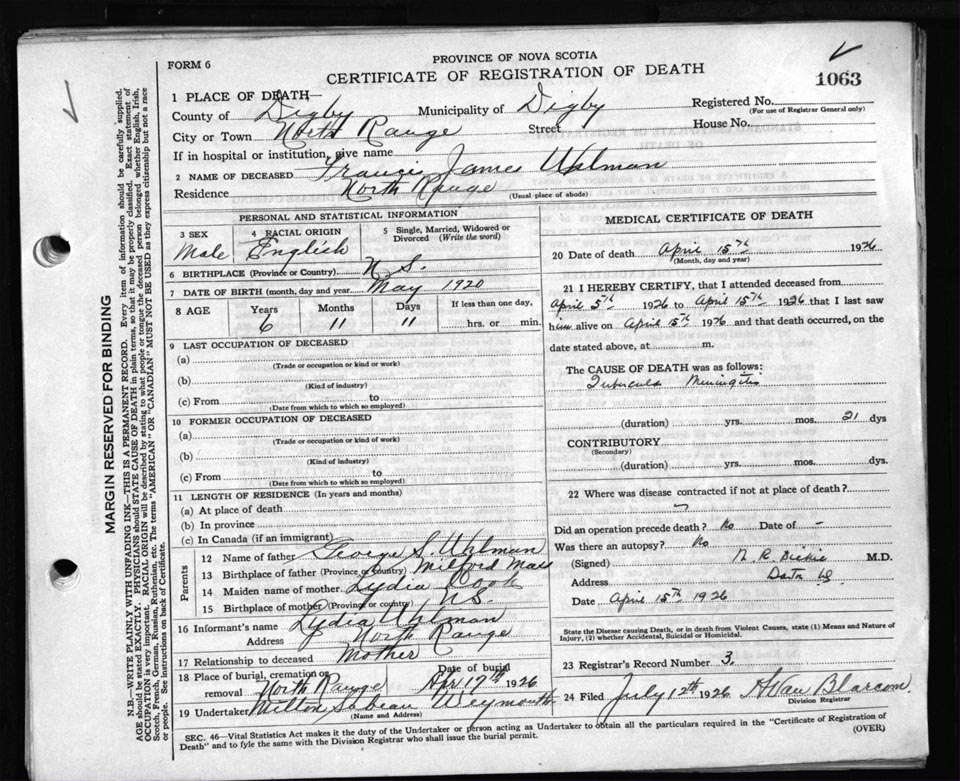 FORM 6
PROVINCE OF NOVA SCOTIA
CERTIFICATE OF REGISTRATION OF DEATH
1063
1 PLACE OF DEATH—
County of Digby Municipality of Digby Registered No.
(For use of Registrar General only)
City or Town North Range Street House No.
If in hospital or institution, give name
2 NAME OF DECEASED Francis James Uhlman
Residence North Range (Usual place of abode)
PERSONAL AND STATISTICAL INFORMATION
3 SEX Male
4 RACIAL ORIGIN English
5 Single, Married, Widowed or Divorced (Write the word)
6 BIRTHPLACE (Province or Country) N S.
7 DATE OF BIRTH (month, day and year May 1920
8 AGE Years 6 Months 11 Days 11 If less than one day, hrs. or min.
9 LAST OCCUPATION OF DECEASED
(a)
(Trade or occupation or kind or work)
(b)
(Kind of industry)
(c) From to
(Date from which to which so employed)
10 FORMER OCCUPATION OF DECEASED
(a)
(Trade or occupation or kind of work)
(b)
(Kind of industry)
(c) From to
(Date from which to which so employed)
11 LENGTH OF RESIDENCE (In years and months)
(a) At place of death
(b) In province
(c) In Canada (if an immigrant)
Parents
12 Name of father George S. Uhlman
13 Birthplace of father (Province or country) Milford Mass
14 Maiden name of mother Lydia Cook
15 Birthplace of mother (Province or country) N S.
16 Informant's name Lydia Uhlman
Address North Range
17 Relationship to deceased Mother
18 Place of burial, cremation or removal North Range Date of burial Apr 17th 1926
19 Undertaker Milton Sabean Weymouth
(Name and Address)
MEDICAL CERTIFICATE OF DEATH
20 Date of death April 15th 1926
(Month, day and year)
21 I HEREBY CERTIFY, that I attended deceased from
April 5th 1926 to April 15th 1926 that I last saw
him alive on April 15th 1926 and that death occurred, on the
date stated above, at m.
The CAUSE OF DEATH was as follows:
Tubercula Meningitis
(duration) yrs. mos. 21 dys
CONTRIBUTORY
(Secondary)
(duration) yrs. mos. dys.
22 Where was disease contracted if not at place of death?
Did an operation precede death? No Date of –
Was there an autopsy? No
(Signed) M.D.
Address
Date April 15th 1926
State the Disease causing Death, or in death from Violent Causes, state (1) Means and Nature of
Injury, (2) whether Accidental, Suicidal or Homicidal.
23 Registrar's Record Number 3.
24 Filed July 12th 1926 H Van Blarcom
Division Registrar
SEC. 46—Vital Statistics Act makes it duty of the Undertaker or person acting as Undertaker to obtain all the particulars required in the "Certificate of Registration of
Death" and to fyle the same with the Division Registrar who shall issue the burial permit.
(OVER)
MARGIN RESERVED FOR BINDING
N.B.—WRITE PLAINLY WITH UNFADING INK—THIS IS A PERMANENT RECORD. Every item of information should be carefully supplied.
AGE should be stated EXACTLY. PHYSICIANS should STATE CAUSE OF DEATH in plain terms, so that it may be properly classified. Exact statement of
OCCUPATION is very important. RACIAL ORIGIN will be described by stating to what people or tongue the deceased person belonged whether English, Irish,
Scotch, French, German, Russian, Ruthenian, etc. The terms "AMERICAN" OR "CANADIAN" MUST NOT BE USED as they express citizenship but not a race
or people. See instructions on back of Certificate.